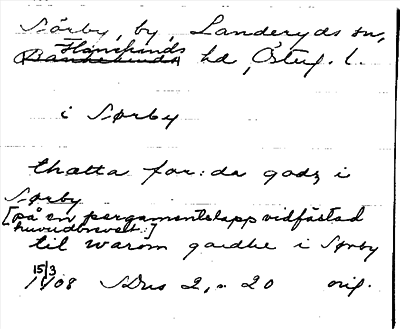 Sörby, by, Landeryds sn,
Hanekinds
Bankekinds hd, Östg. l.
i Sørby
thætta for:da godz i
Sørby
[på en pergamentslapp vidfästad
huvudbrevet:]
til warom gardhe i Sørby
15/3
1408 SDns 2, s. 20 orig.